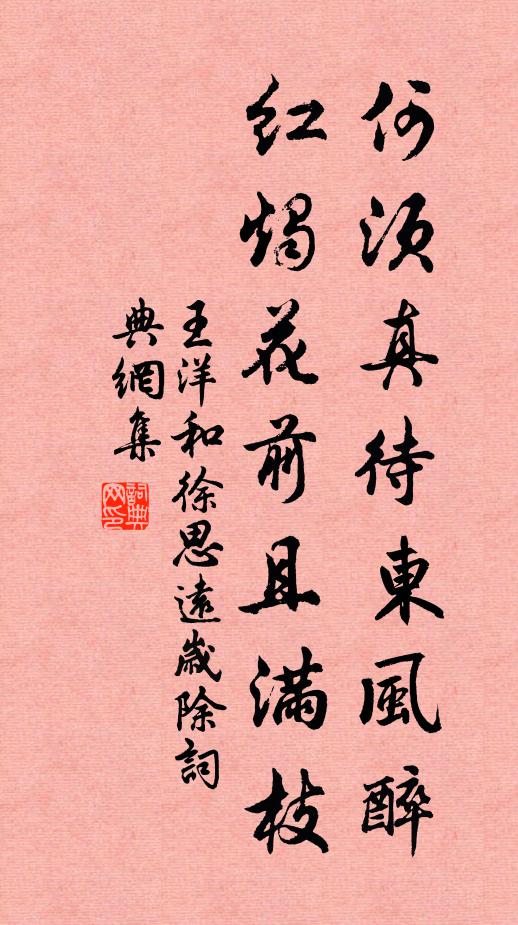 何須真待東風醉
紅燭花前且滿枝
王洋和徐思遠歲除詞
典網集
詞典
网印